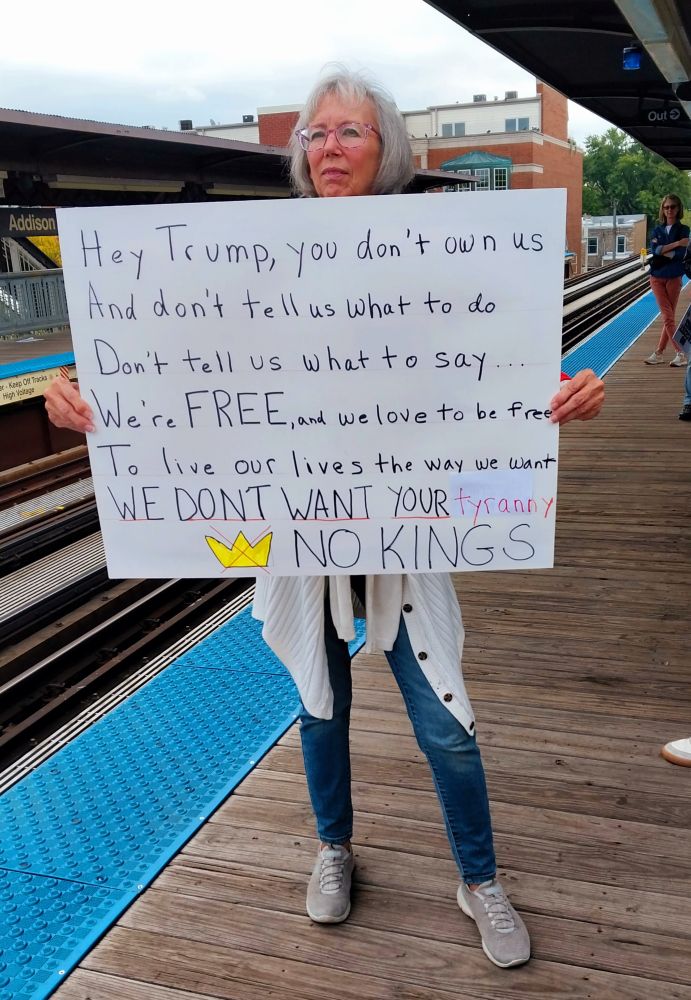 Out
Addison
Hey Trump, you don't own us
And don't tell us what to do
Don't tell us what to say...
We're FREE, and we love to be free
To live our lives the way we want
WE DONT WANT YOUR tyranny
NO KINGS
Keep Off Tracks
High Voltage